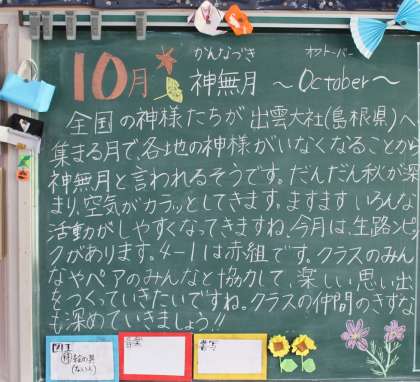 かんなづき オクトーバー
10月 神無月 ～October～
全国の神様たちが出雲大社(島根県)へ
集まる月で、各地の神様がいなくなることから
神無月と言われるそうです。だんだん秋が深
まり、空気がカラッとしてきます。ますますいろんな
活動がしやすくなってきますね。今月は、生路ンピッ
クがあります。4-1は赤組です。クラスのみん
なやペアのみんなと協力して、楽しい思い出
をつくっていきたいですね。クラスの仲間のきずな
も深めていきましょう!!
図工
絵の具
(ないん)
音楽
書写